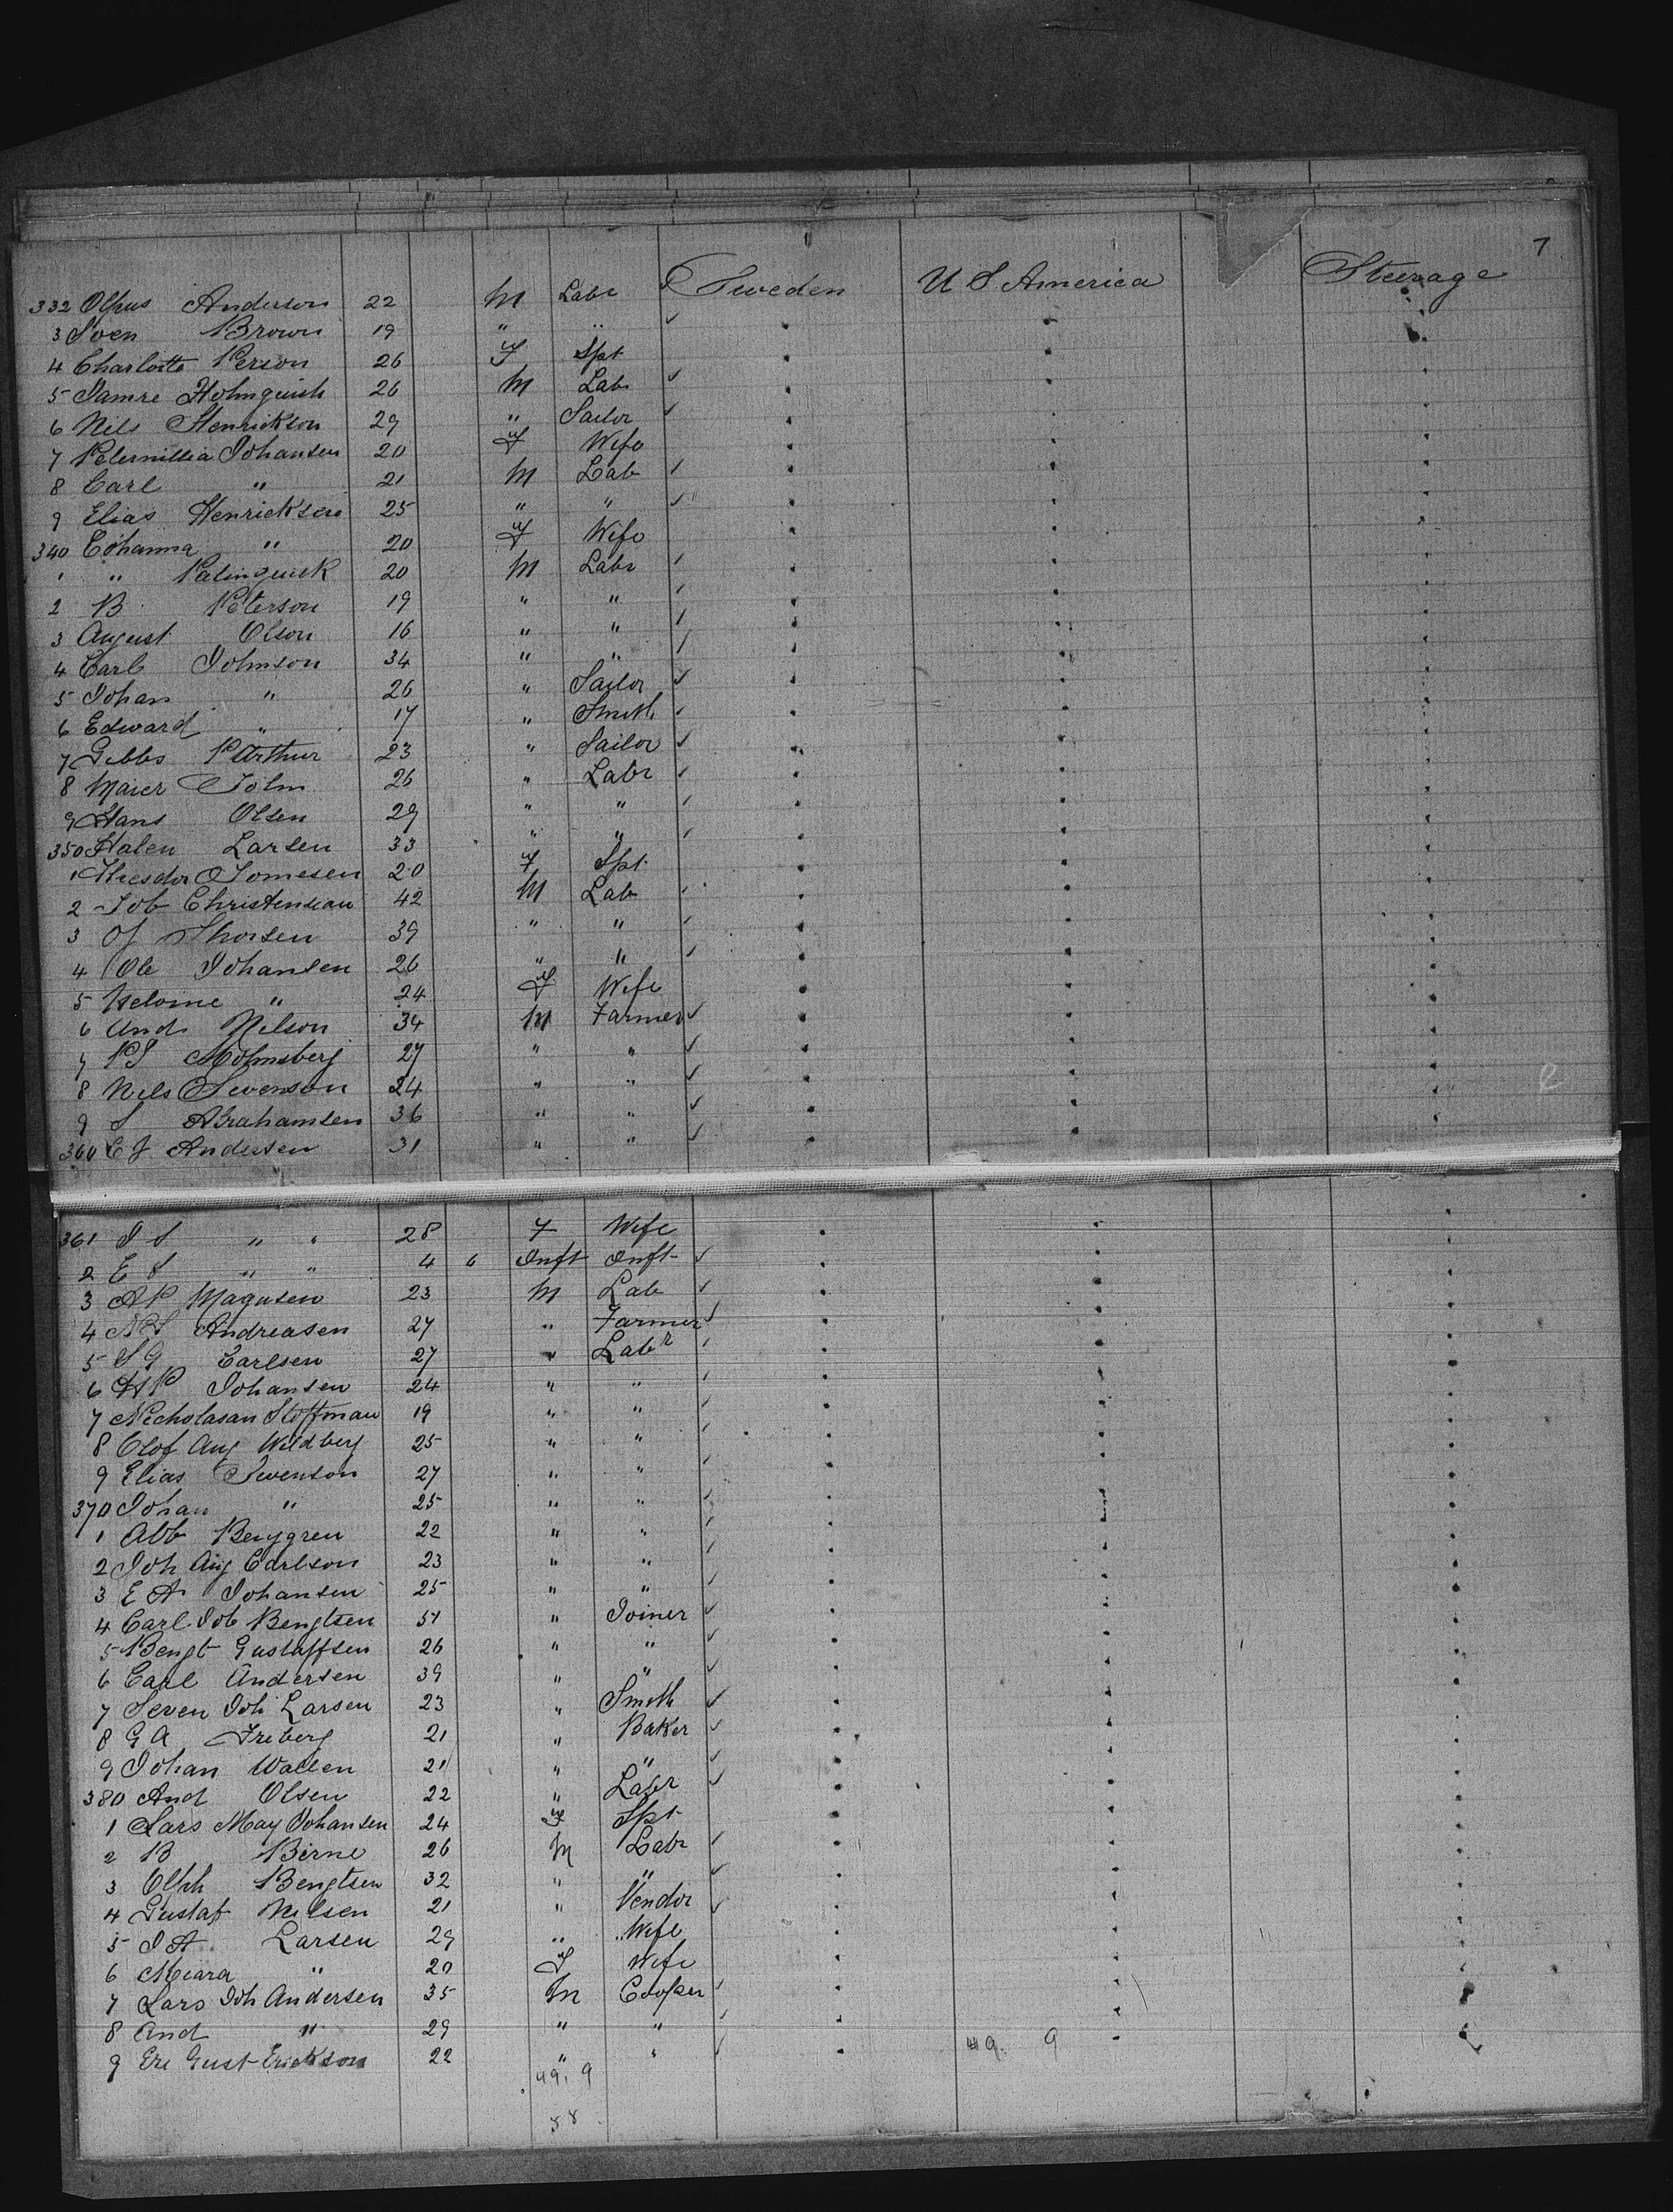 7
332 Olpus Anderson 22 M Labr Sweden U S America Steerage
3 Sven Brown 19 " "
4 Charlotte Person 26 F Spt
5 Holmquish 26 M Lab
6 Nils Henrickson 29 " Sailor
7 Peternillia Johansen 20 F Wife
8 Carl " 21 M Lab
9 Elias Henricksen 25 " "
340 Cohanna " 20 F Wife
1 " Palinquisk 20 M Labr
2 B Peterson 19 " "
3 August Olson 16 " "
4 Carl Johnson 34 " "
5 Johan " 26 " Sailor
6 Edward " 17 " Smith
7 Gibbs P Arthur 23 " Sailor
8 Maier John 26 " Labr
9 Hans Olsen 29 " "
350 Halen Larsen 33 " "
1 Jomesen 20 F Spt
2 Job Christensian 42 M Lab
3 Of Thorsen 39 " "
4 Ole Johansen 26 " "
5 Heloine " 24 F Wife
6 And Nelson 34 M Farmer
7 Holmsberg 27 " "
8 Nels Swenson 24 " "
9 S Abrahamsen 36 " "
360 C J Andersen 31 " "
361 I S " " 28 F Wife
2 E S " " 4 6 Inft Inft
3 A P Magusen 23 M Lab
4 Andreasen 27 " Farmer
5 S G Carlsen 27 " Labr
6 H P Johansen 24 " "
7 Nicholasan Stoffman 19 " "
8 Olof Aug Wildberg 25 " "
9 Elias Swenson 27 " "
370 Johan " 25 " "
1 Alb Benggren 22 " "
2 Joh Aug Carlson 23 " "
3 E A Johansen 25 " "
4 Carl Job Bengtsen 51 " Joiner
5 Bengt Gustaffsen 26 " "
6 Carl Andersen 39 " "
7 Seven Joh Larsen 23 " Smith
8 G A Friberg 21 " Baker
9 Johan Wallen 21 " "
380 And Olsen 22 " Labr
1 Lars May Johansen 24 F Spt
2 B Birne 26 M Labr
3 Bengtsen 32 " "
4 Gustaf Nilsen 21 " Vendor
5 J A Larsen 29 " " Wife
6 Miara " 20 F Wife
7 Lars Joh Andersen 35 M Cooper
8 And " 29 " "
9 Gust Erickson 22 " " 49. 9
49. 9
58